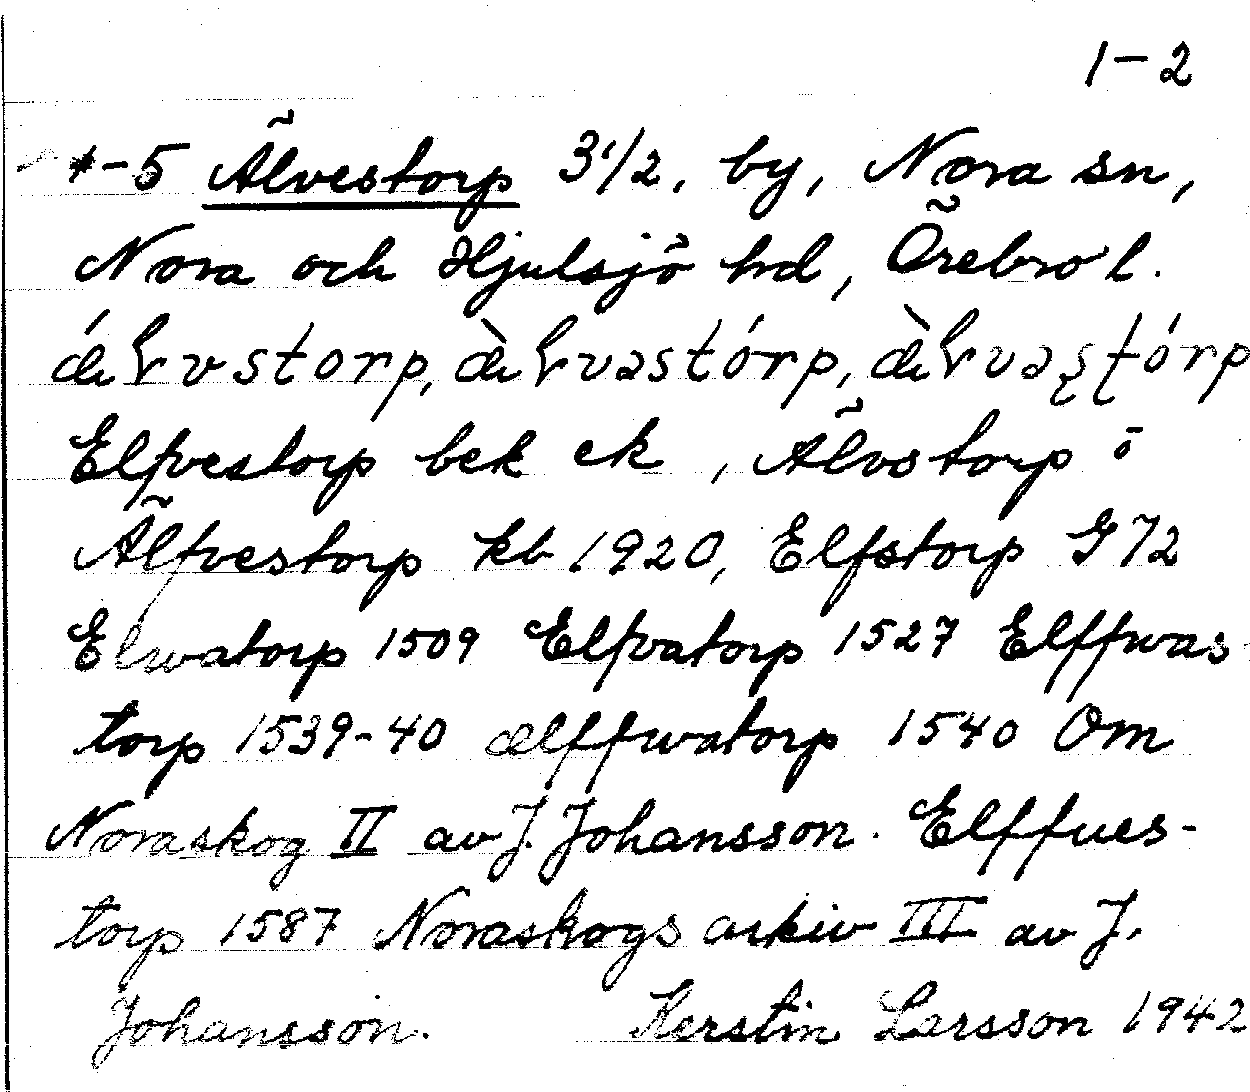 1-2
*-5 Älvestorp 3 1/2, by, Nora sn,
Nora och Hjulsjö hd, Örebro l.
Elfvestorp bek ek, Älvstorp ö
Älfvestorp kb 1920, Elfstorp G72
Elwatorp 1509 Elfvatorp 1527 Elffwas
torp 1539-40 ælffwatorp 1540 Om
Noraskog II av J. Johansson. Elffues-
torp 1587 Noraskogs arkiv III av J.
Johansson. Kerstin Larsson 1942